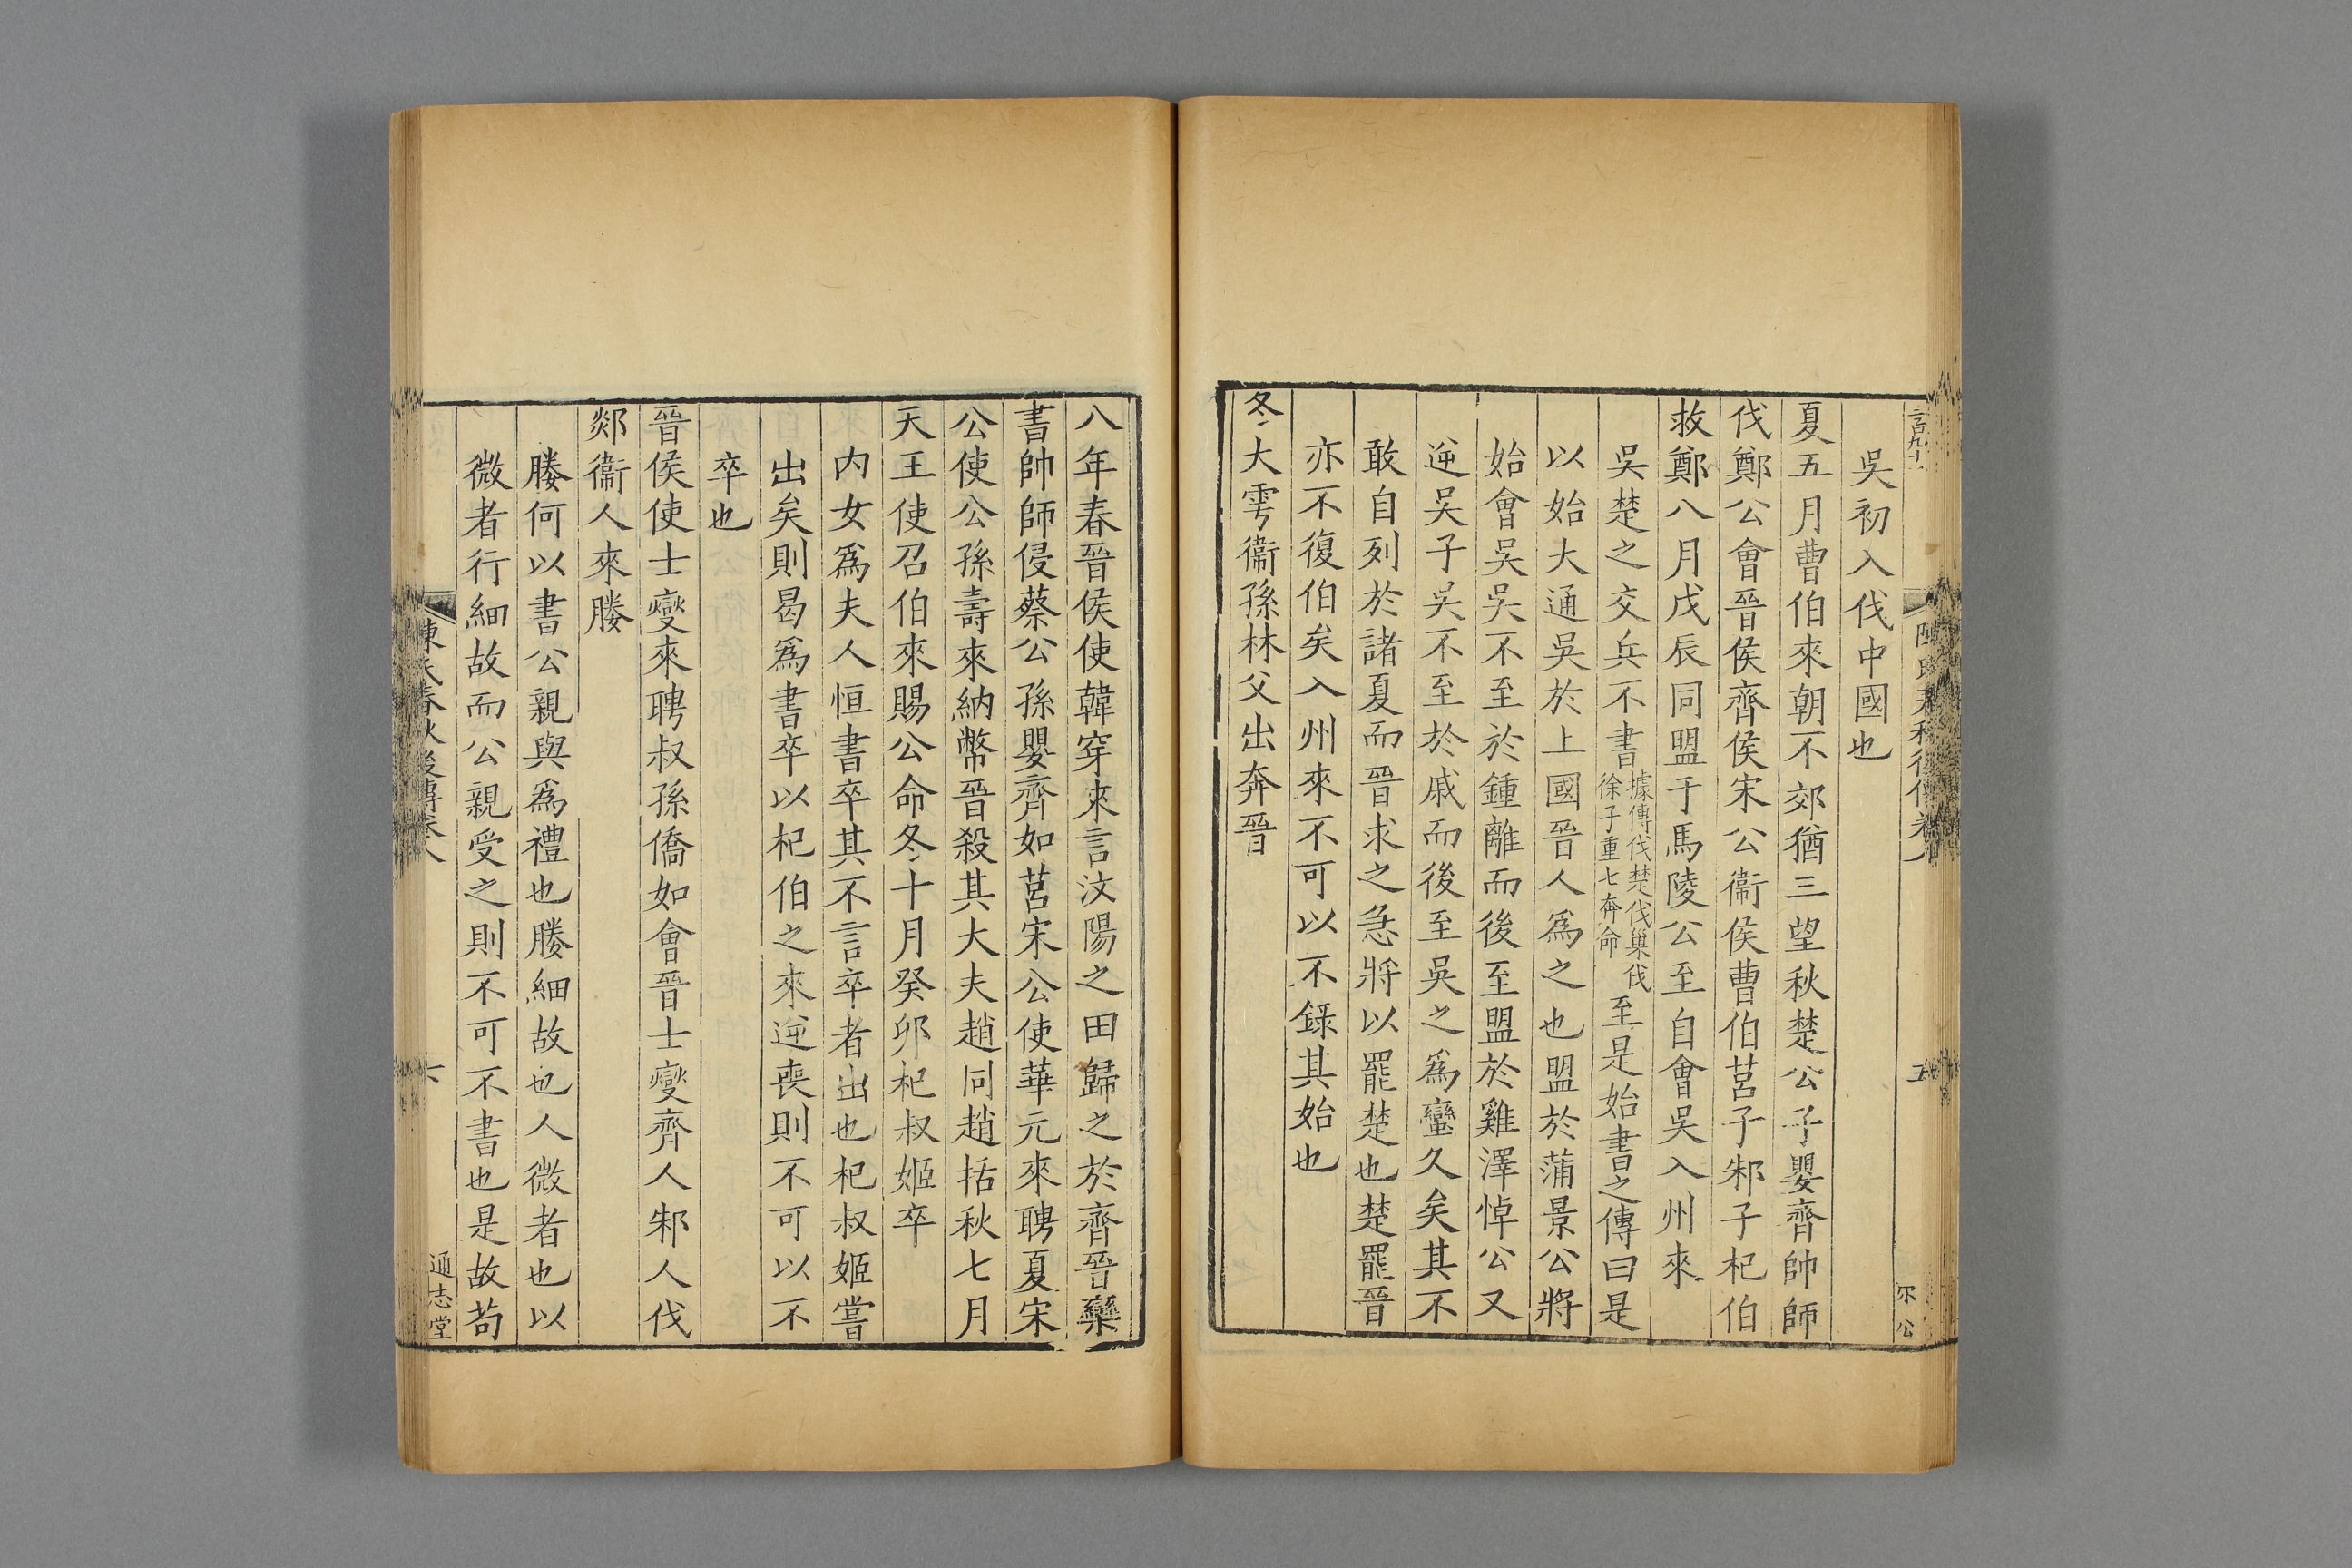 吳初入伐中國也
夏五月曹伯來朝不郊猶三望秋楚公子嬰齊帥師
伐鄭公會晉侯齊侯宋公衞侯曹伯莒子邾子杞伯
救鄭八月戊辰同盟于馬陵公至自會吳入州來
吳楚之交兵不書據傳伐楚伐巢伐徐子重七奔命至是始書之傳曰是
以始大通吳於上國晉人爲之也盟於蒲景公將
始會吳吳不至於鍾離而後至盟於雞澤悼公又
逆吳子吳不至於戚而後至吳之爲蠻久矣其不
敢自列於諸夏而晉求之急將以罷楚也楚罷晉
亦不復伯矣入州來不可以不錄其始也
冬大雩衞孫林父出奔晉
五
八年春晉侯使韓穿來言汶陽之田歸之於齊晉欒
書帥師侵蔡公孫嬰齊如莒宋公使華元來聘夏宋
公使公孫壽來納幣晉殺其大夫趙同趙括秋七月
天王使召伯來賜公命冬十月癸卯杞叔姬卒
内女爲夫人恒書卒其不言卒者出也杞叔姬嘗
出矣則曷爲書卒以杞伯之來逆喪則不可以不
卒也
晉侯使士燮來聘叔孫僑如會晉士燮齊人邾人伐
郯衞人來媵
媵何以書公親與爲禮也媵細故也人微者也以
微者行細故而公親受之則不可不書也是故苟
陳氏春秋後傳卷八
通志堂